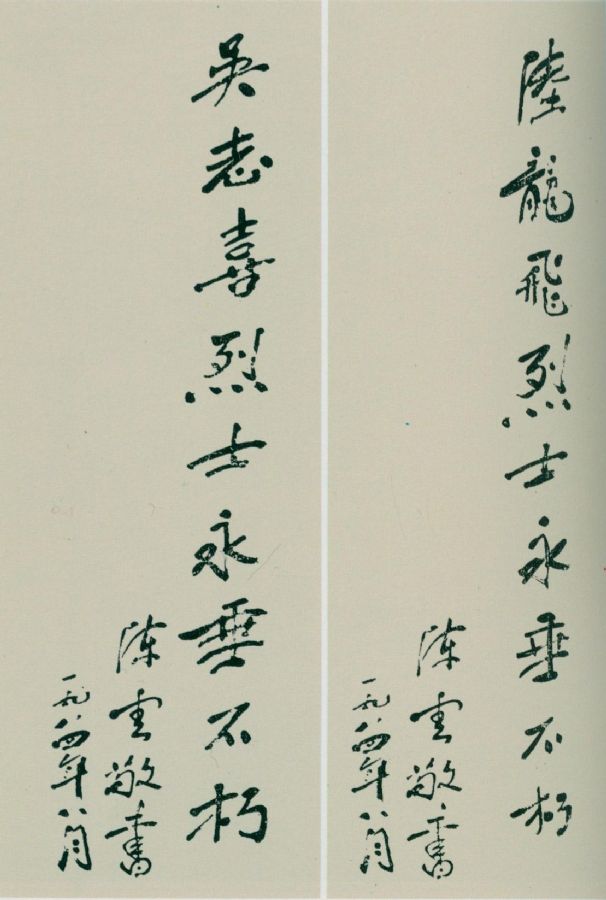 陸龍飛烈士永垂不朽
陈雲敬書
一九八四年八月
吴志喜烈士永垂不朽
陈雲敬書
一九八四年八月